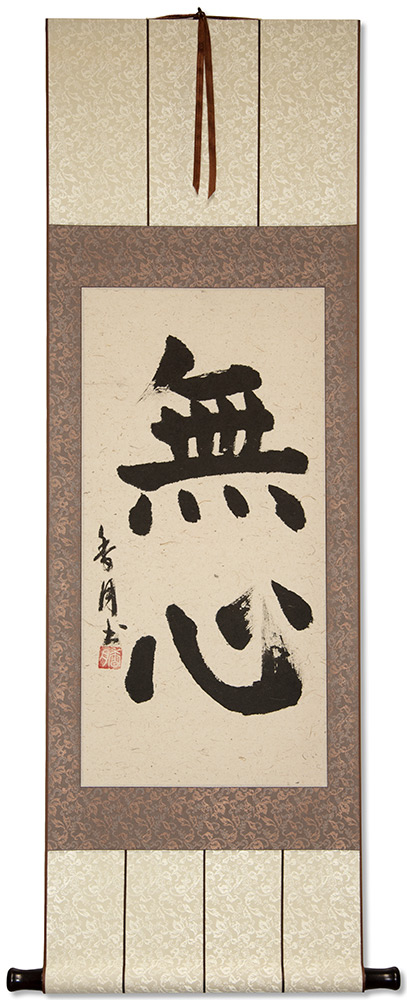 無心
香月書